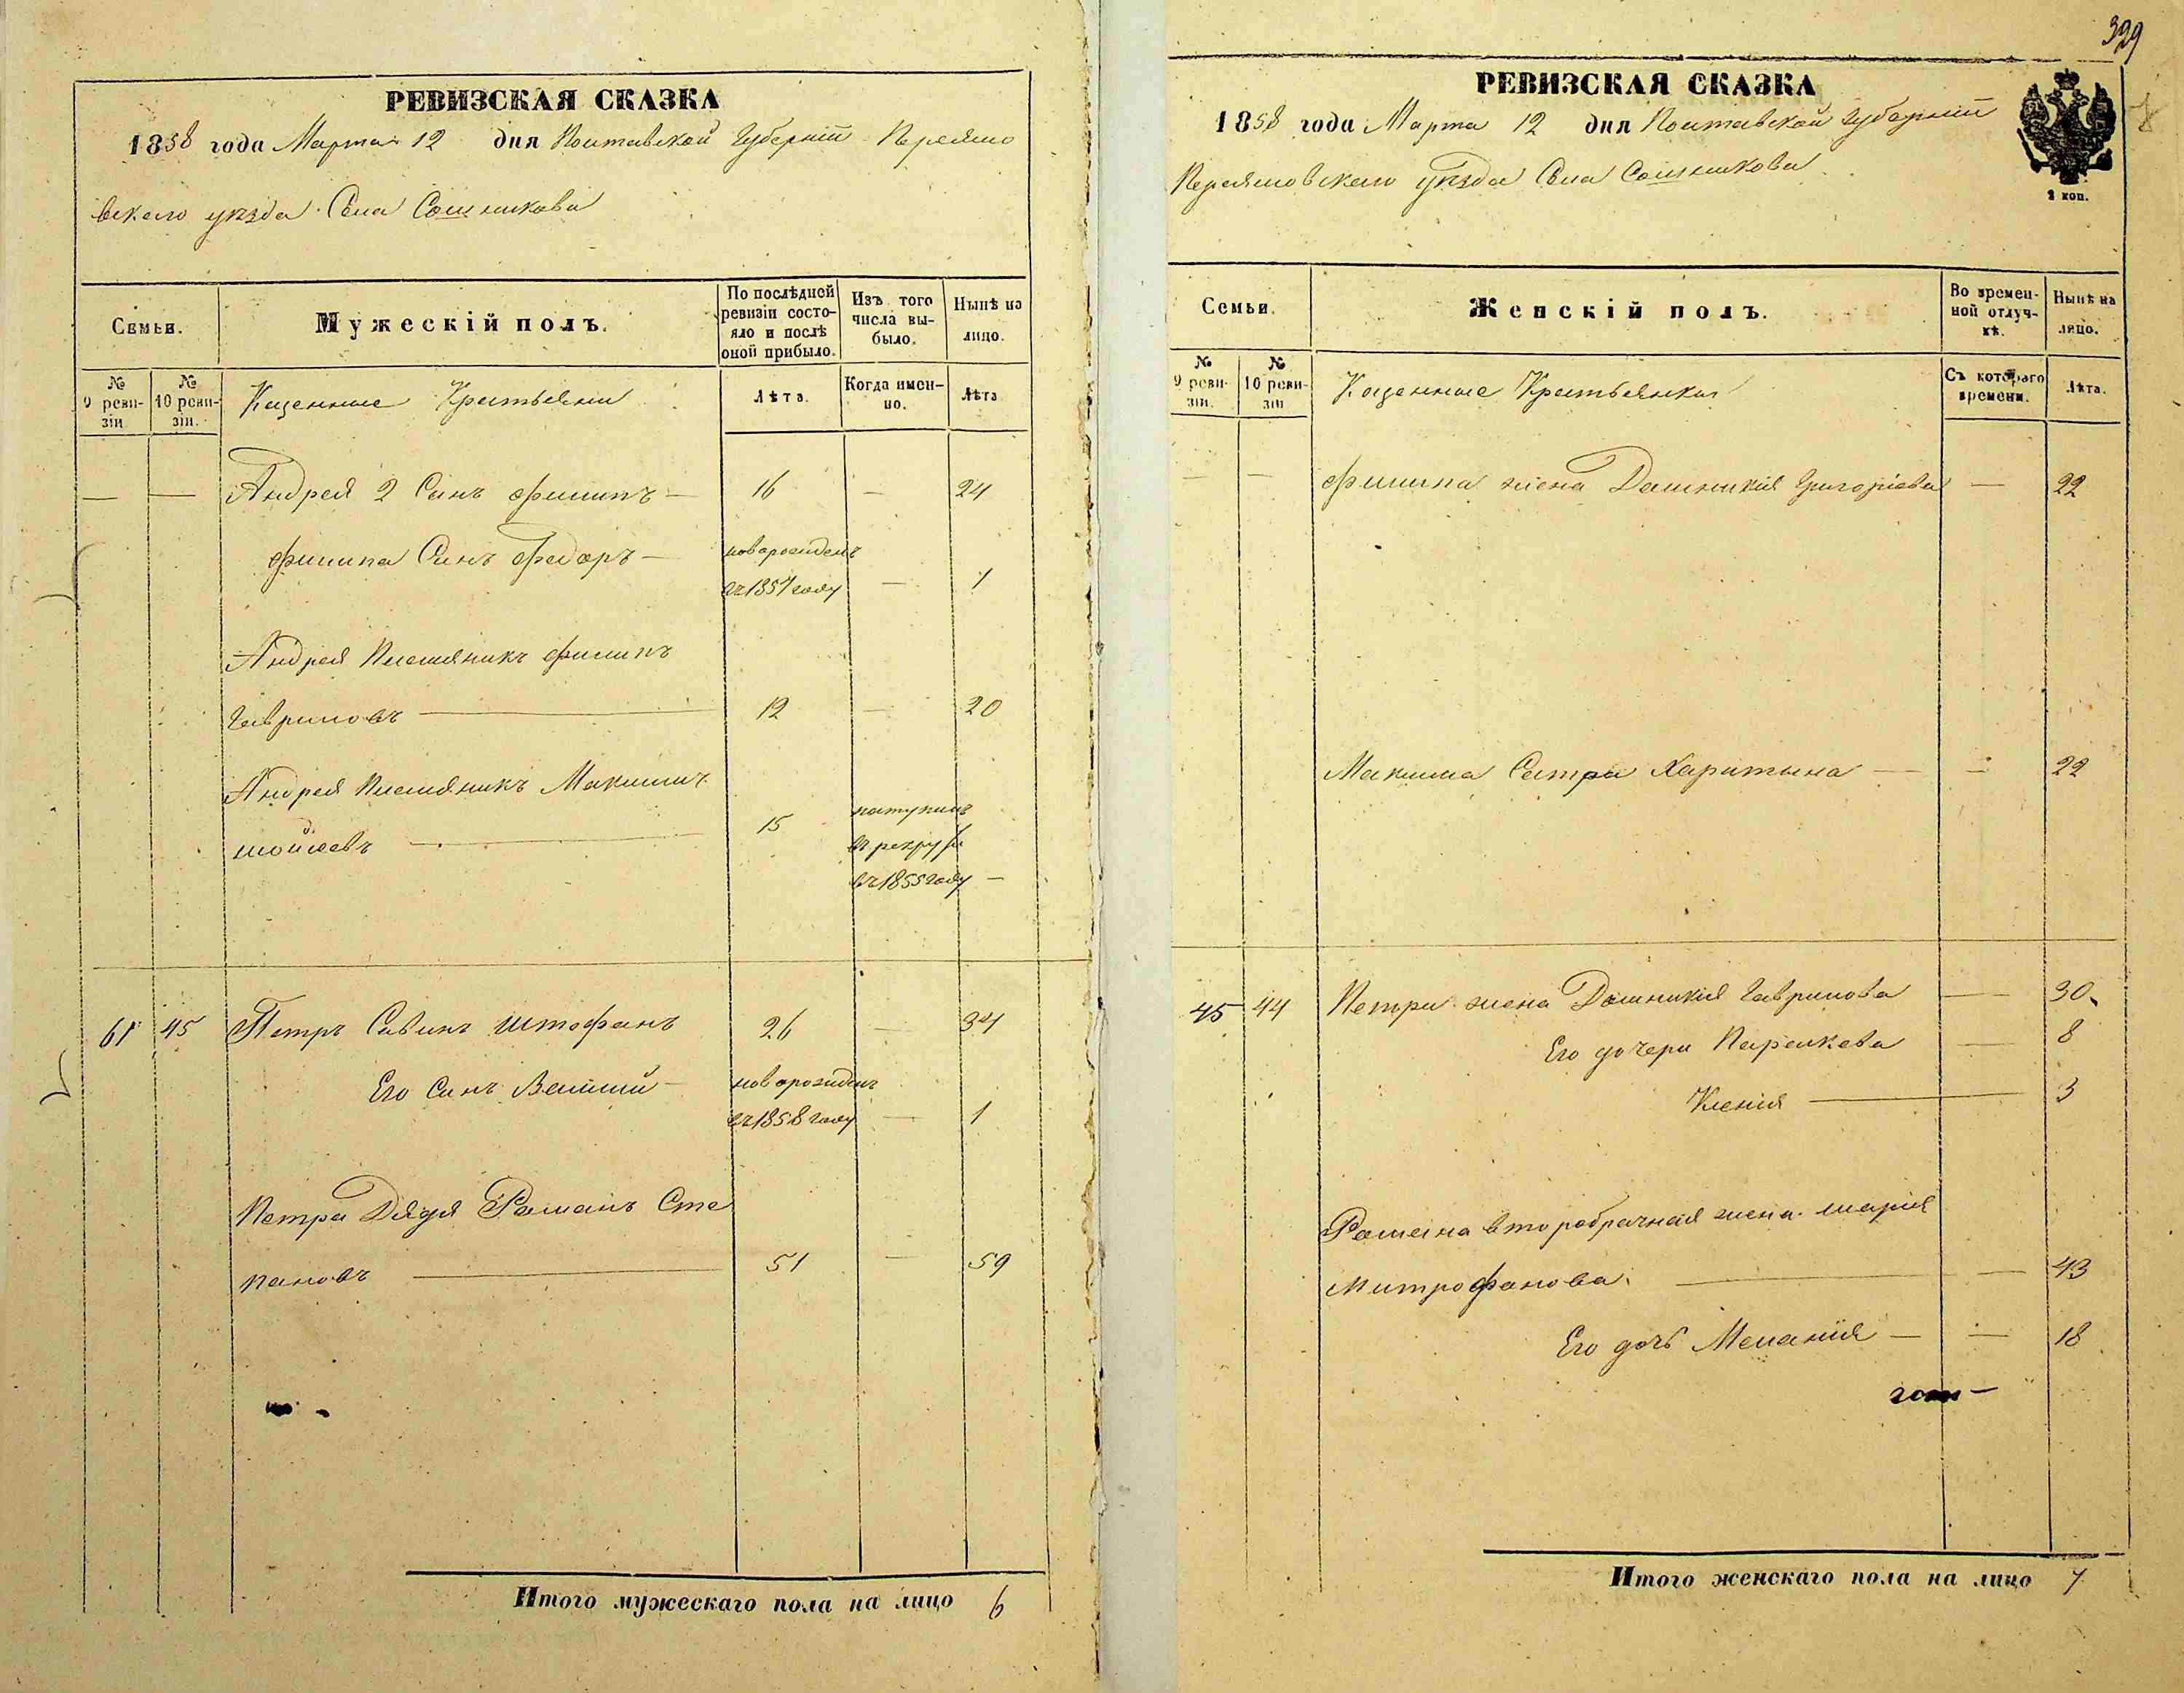 РЕВИЗСКАЯ СКАЗКА
1858 года Марта 12 дня Полтавской Губерніи Переясло
вскаго уѣзда Села Сошникова
Семьи.
Мужескій полъ.
По послѣдней ревизіи состояло и послѣ оной прибыло.
Изъ того числа выбыло.
Нынѣ на лицо.
№ 9 ревизіи.
№ 10 ревизіи.
Казенные Крестьяни
Лѣта.
Когда именно.
Лѣта
— — Андрея 2 Синъ Филипъ — 16 — 24
Филипа Синъ Федоръ — новорожденъ
въ 1857 году — 1
Андрея Племяникъ Филипъ
Гавриловъ — 12 — 20
Андрея Племяникъ Максимъ
Мойсеевъ — 15
поступилъ
въ рекруты
въ 1855 году —
61 45 Петръ Савинъ Штофанъ 26 — 34
Его Синъ Василий — новорожденъ
въ 1858 году — 1
Петра Дядя Романъ Сте
пановъ — 51 — 59
Итого мужескаго пола на лицо 6
399
РЕВИЗСКАЯ СКАЗКА
1858 года Марта 12 дня Полтавской Губерніи
Переясловскаго уѣзда Села Сошникова
2 коп.
Семьи.
Женскій полъ.
Во временной отлучкѣ.
Нынѣ на лицо.
№ 9 ревизіи.
№ 10 ревизіи
Казенные Крестьянки
Съ котораго времени.
Лѣта.
— — Филипа жена Домникія Григоріева — 22
Максима Сестра Харитына — — 22
45 44 Петра жена Домникия Гаврилова — 30
Его дочери Параскева — 8
Ксения — 3
Романа второбрачная жена Мария
Митрофанова — — 43
Его дочь Меланія — — 18
Итого женскаго пола на лицо 7